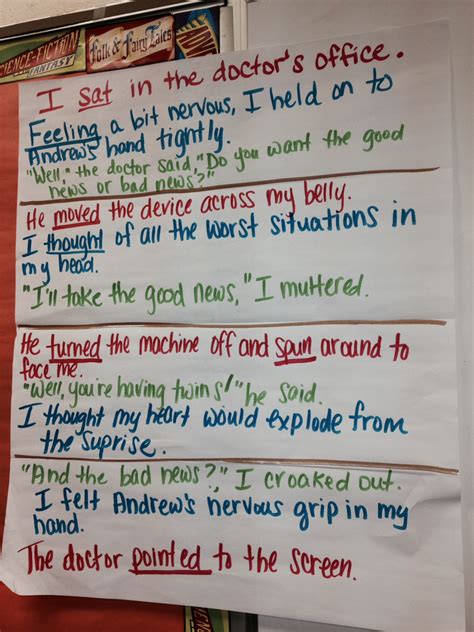 SCIENCE-FICTION
FANTASY
Folk & Fairy Tales
I sat in the doctor's office.
Feeling a bit nervous, I held on to
Andrew's hand tightly.
"Well," the doctor said, "Do you want the good
news or bad news?"
He moved the device across my belly.
I thought of all the worst situations in
my head.
"I'll take the good news," I muttered.
He turned the machine off and spun around to
face me.
"Well, you're having twins!" he said.
I thought my heart would explode from
the suprise.
"And the bad news?," I croaked out.
I felt Andrew's nervous grip in my
hand.
The doctor pointed to the screen.